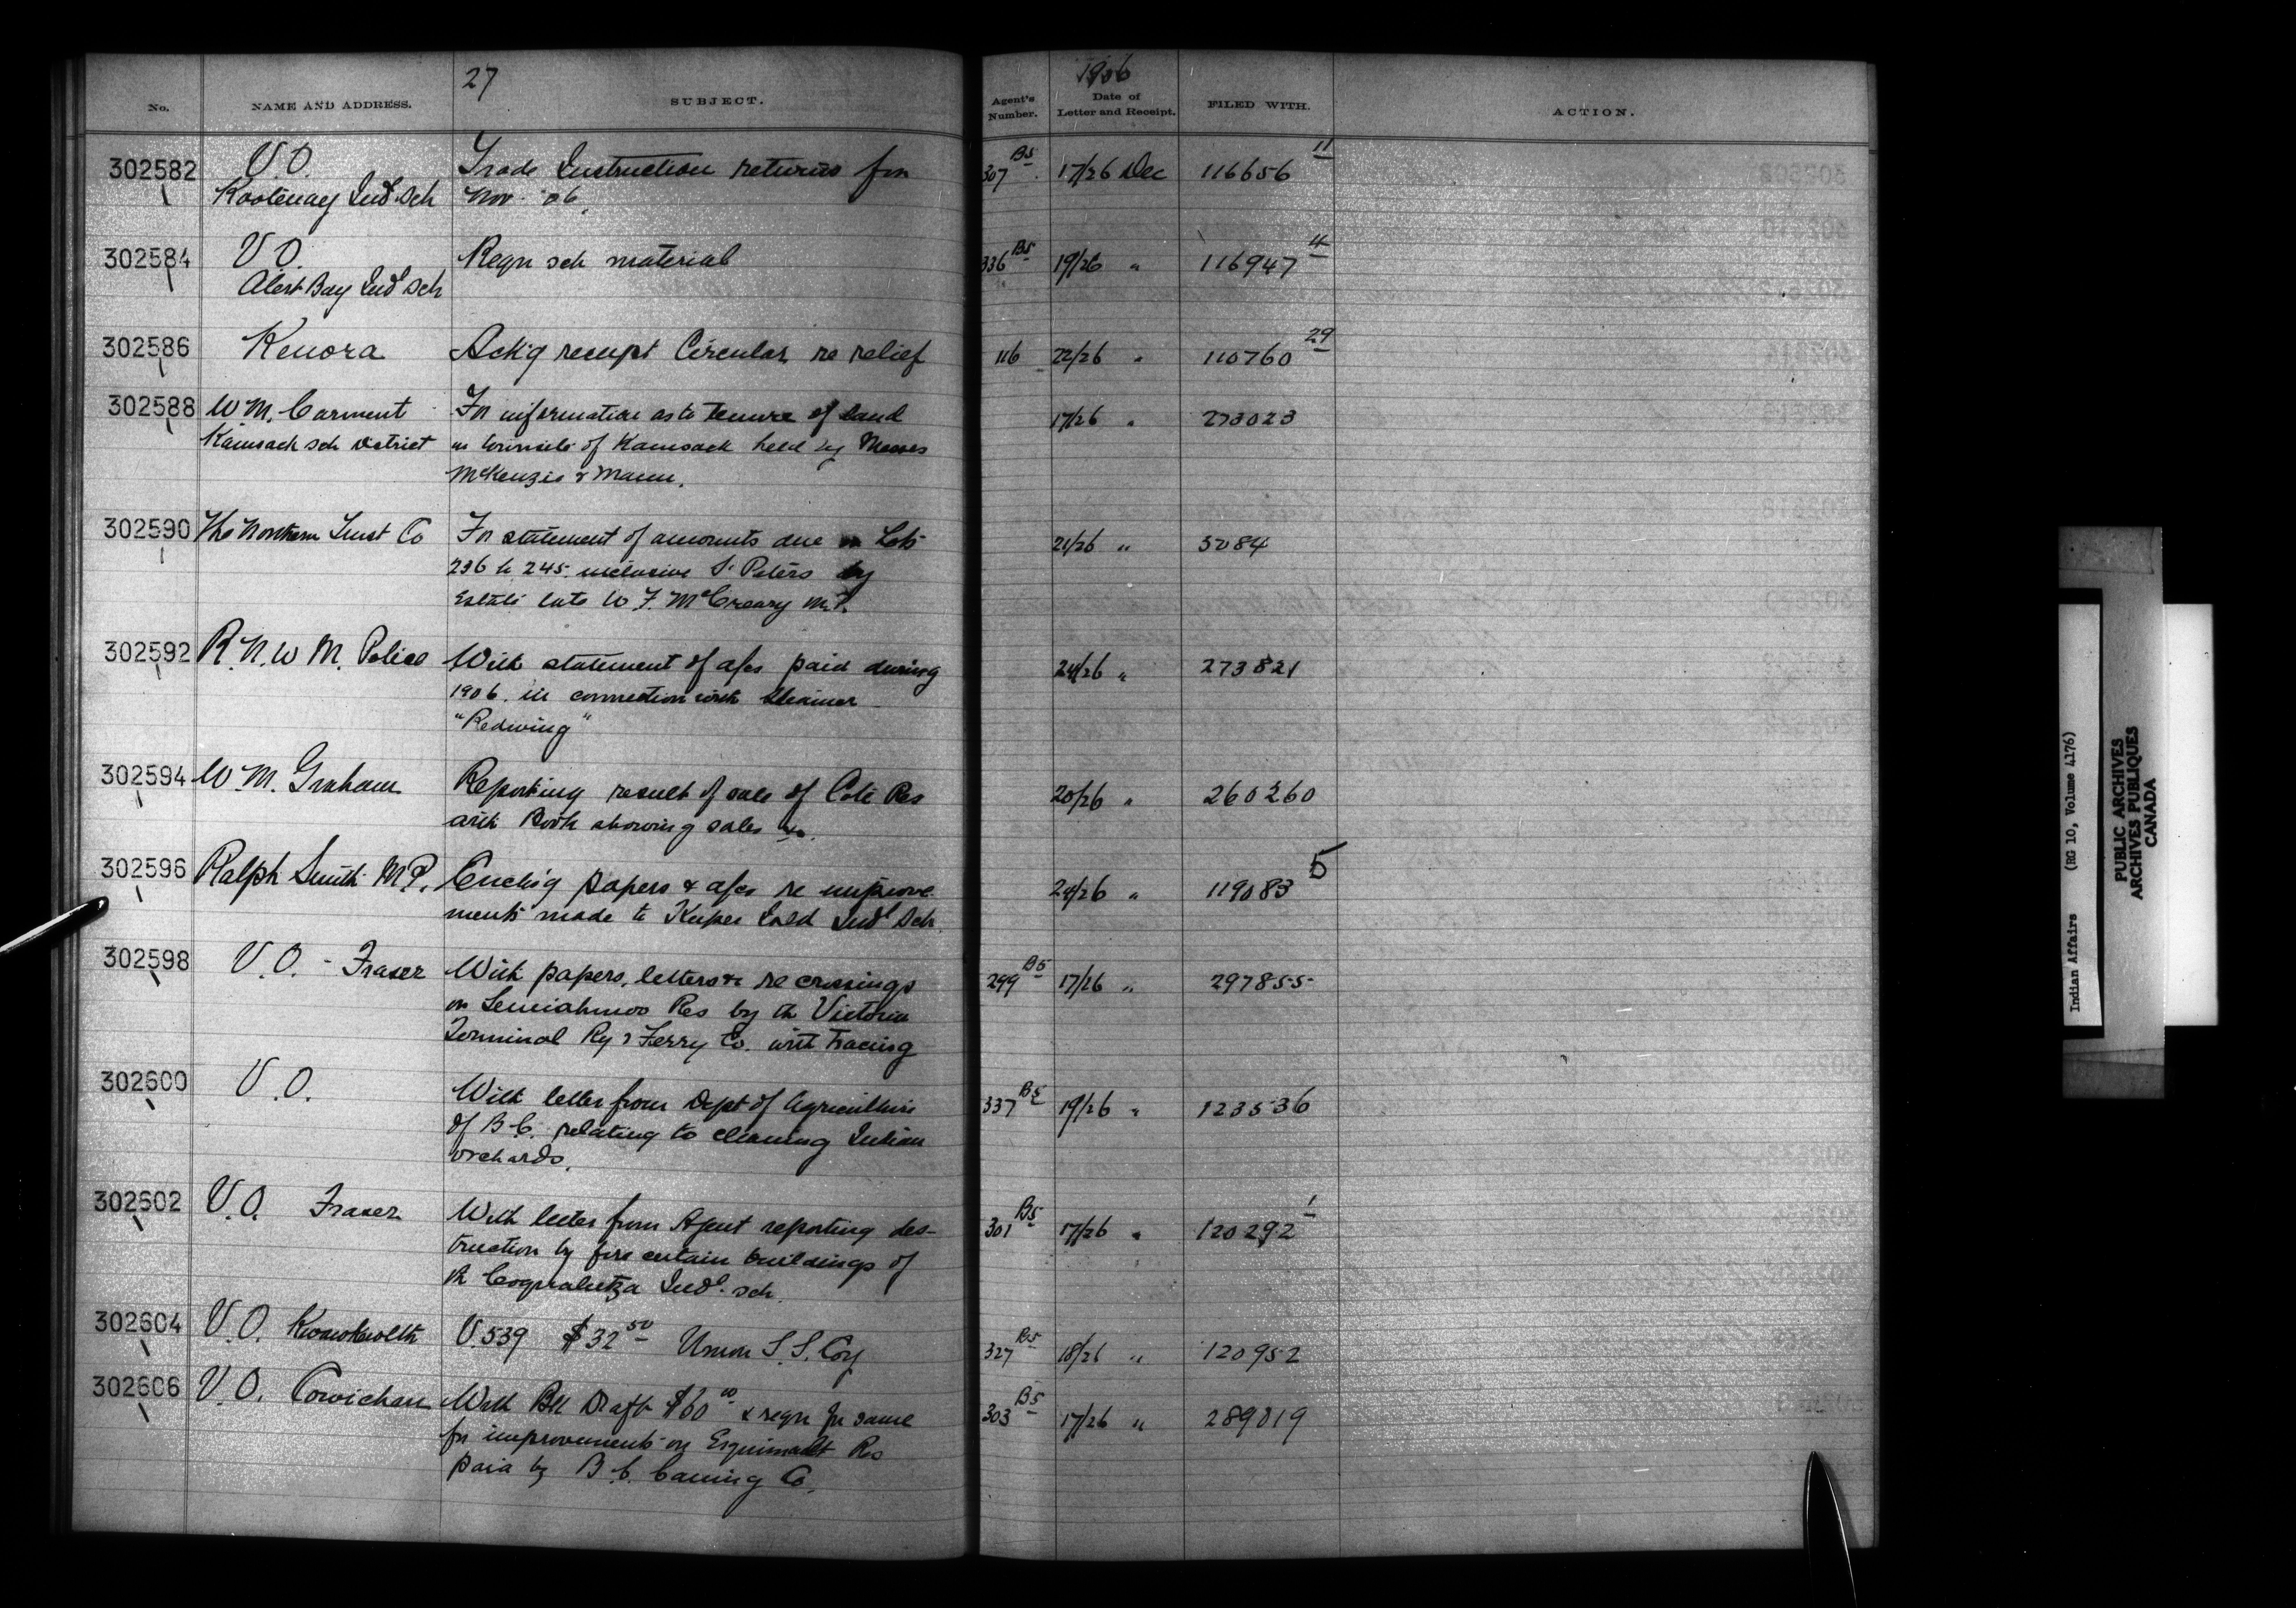 27
1906
No.
NAME AND ADDRESS.
SUBJECT.
Agent's Number.
Date of Letter and Receipt.
FILED WITH.
ACTION.
302582 V.O. Trade Instruction returns for 307 B5 17/26 Dec 116656 11
Kootenay Indl Sch Nov. '06.
302584 V.O. Reqn sch material 336 B5 19/26 " 116947 4
Alert Bay Indl Sch
302586 Kenora Ack'g receipt Circular re relief 116 22/26 " 110760 29
302588 W M. Carment For information as to tenure of land 17/26 " 273023
Kamsack sch District in townsite of Kamsack held by Messrs
McKenzie & Mann.
302590 The Northern Trust Co For statement of amounts due on Lots 21/26 " 5084
236 to 245 inclusive St Peters by
Estate late W F. McCreary M.P.
302592 R.N.W M. Police With statement of a/cs paid during 24/26 " 273821
1906. in connection with steamer
"Redwing"
302594 W M. Graham Reporting result of sale of Coté Res 20/26 " 260260
with Book showing sales &c.
302596 Ralph Smith M.P. Enclos'g papers & a/cs re improve 24/26 " 119083 5
ments made to Kuper Isld Indl Sch
302598 V.O. - Fraser With papers, letters &c re crossings 299 B5 17/26 " 297855
on Semiahmoo Res by the Victoria
Terminal Ry & Ferry Co. with tracing
302600 V.O. With letter from Dept of Agriculture 337 B5 19/26 " 123536
of B.C. relating to cleaning Indian
orchards.
302602 V.O. Fraser With letter from Agent reporting des- 301 B5 17/26 " 120292 1
truction by fire certain buildings of
the Coqualeetza Indl. sch.
302604 V.O. Kwawkwelth V.539 $32 50 Union S.S. Coy 327 B5 18/26 " 120952
302606 V.O. Cowichan With Bk Draft $60 00 & reqn for same 303 B5 17/26 " 289819
for improvements on Esquimalt Res
paid by B.C. Caning Co.
Indian Affairs (RG 10, Volume 4176)
PUBLIC ARCHIVES
ARCHIVES PUBLIQUES
CANADA